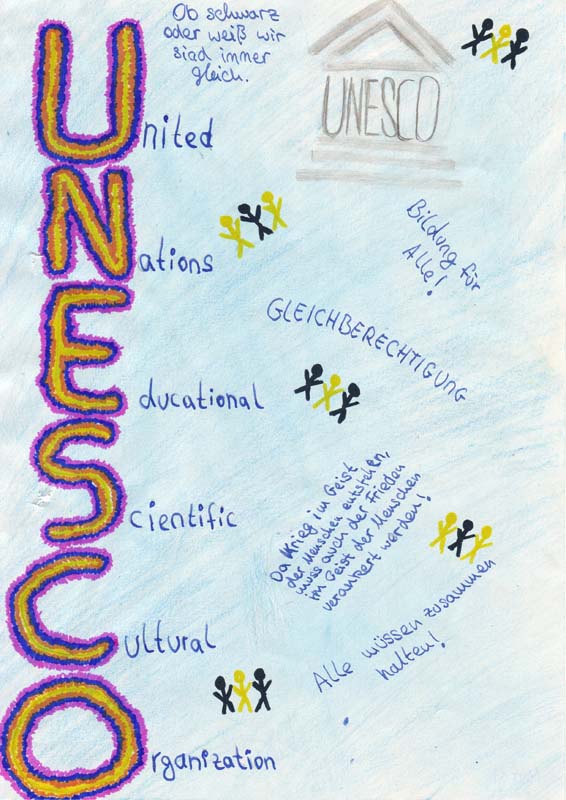 Ob schwarz
oder weiß wir
sind immer
gleich.
UNESCO
United
Nations
Bildung für
Alle!
GLEICHBERECHTIGUNG
Educational
Da Krieg im Geist
der Menschen entstehen,
muss auch der Frieden
im Geist der Menschen
verankert werden!
Scientific
Alle müssen zusammen
halten!
Cultural
Organization